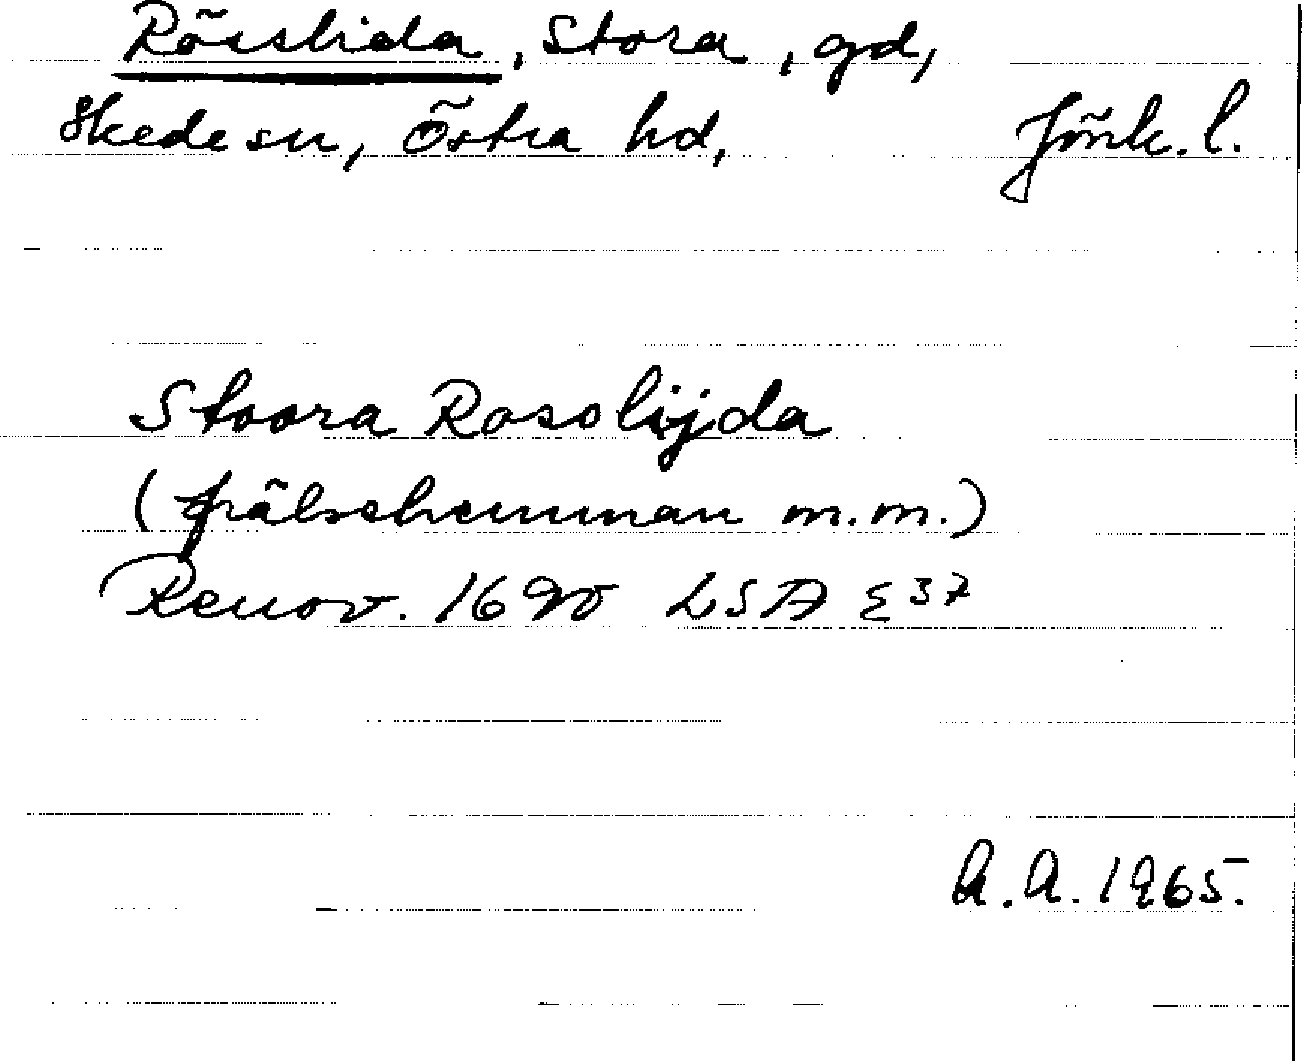 Röslida, Stora, gd,
Skede sn, Östra hd, Jönk. l.
Stoora Rosolijda
(frälsehemman m.m.)
Renov. 1690 LSA E37
A.A. 1965.